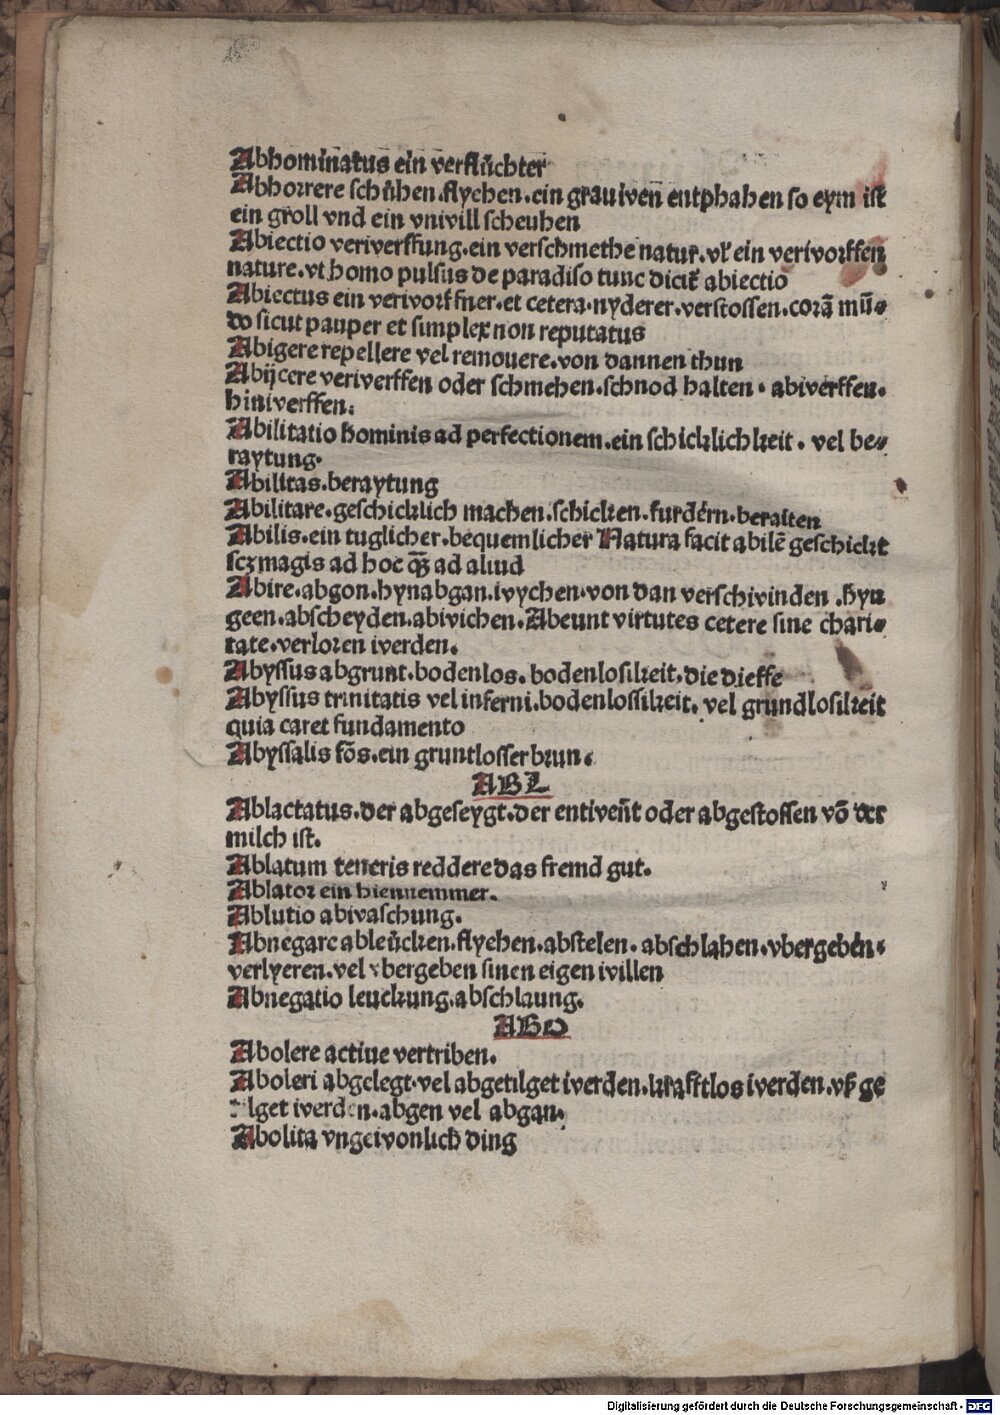 Abhominatus ein verflůchter
Abhorrere schůhen.flyehen.ein grauwen entphahen so eym ist
ein groll vnd ein vnwill scheuhen
Abiectio verwerffung.ein verschmethe natur.vl̄ ein verworffen
nature.vt homo pulsus de paradiso tunc dicit̄ abiectio
Abiectus ein verworffner.et cetera.nyderer.verstossen.corā mū⸗
do sicut pauper et simplex non reputatus
Abigere repellere vel remouere.von dannen thun
Abijcere verwerffen oder schmehen.schnod halten.abwerffen.
hinwerffen.
Abilitatio hominis ad perfectionem.ein schicklichkeit.vel be⸗
raytung.
Abilitas.beraytung
Abilitare.geschicklich machen.schicken.furdern.beraiten
Abilis.ein tuglicher.bequemlicher Natura facit abilē geschickt
scz magis ad hoc qꝫ ad aliud
Abire.abgon.hynabgan.wychen.von dan verschwinden.hyn
geen.abscheyden.abwichen.Abeunt virtutes cetere sine chari⸗
tate.verloren werden.
Abyssus abgrunt.bodenlos.bodenlosikeit.die dieffe
Abyssus trinitatis vel inferni.bodenlossikeit.vel grundlosikeit
quia caret fundamento
Abyssalis fōs.ein gruntlosser brun.
ABL
Ablactatus.der abgeseygt.der entwent oder abgestossen vō der
milch ist.
Ablatum teneris reddere das fremd gut.
Ablator ein hiennemmer.
Ablutio abwaschung.
Abnegare ableůcken.flyehen.abstelen.abschlahen.vbergeben.
verlyeren.vel vbergeben sinen eigen willen
Abnegatio leuckung.abschlaung.
ABO
Abolere actiue vertriben.
Aboleri abgelegt.vel abgetilget werden.krafftlos werden.vß ge
tilget werden.abgen vel abgan.
Abolita vngewonlich ding
Digitalisierung gefördert durch die Deutsche Forschungsgemeinschaft - DFG